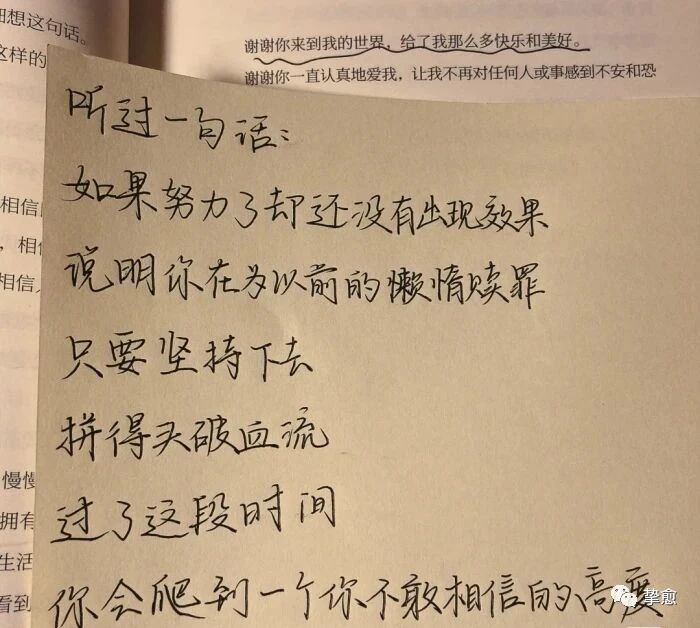 细想这句话。
这样的
谢谢你来到我的世界，给了我那么多快乐和美好。
谢谢你一直认真地爱我，让我不再对任何人或事感到不安和恐
听过一句话：
如果努力了却还没有出现效果
说明你在为以前的懒惰赎罪
只要坚持下去
拼得头破血流
过了这段时间
你会爬到一个你不敢相信的高度
相信
，相信
相信
慢慢
拥有
生活
看到
挚愈